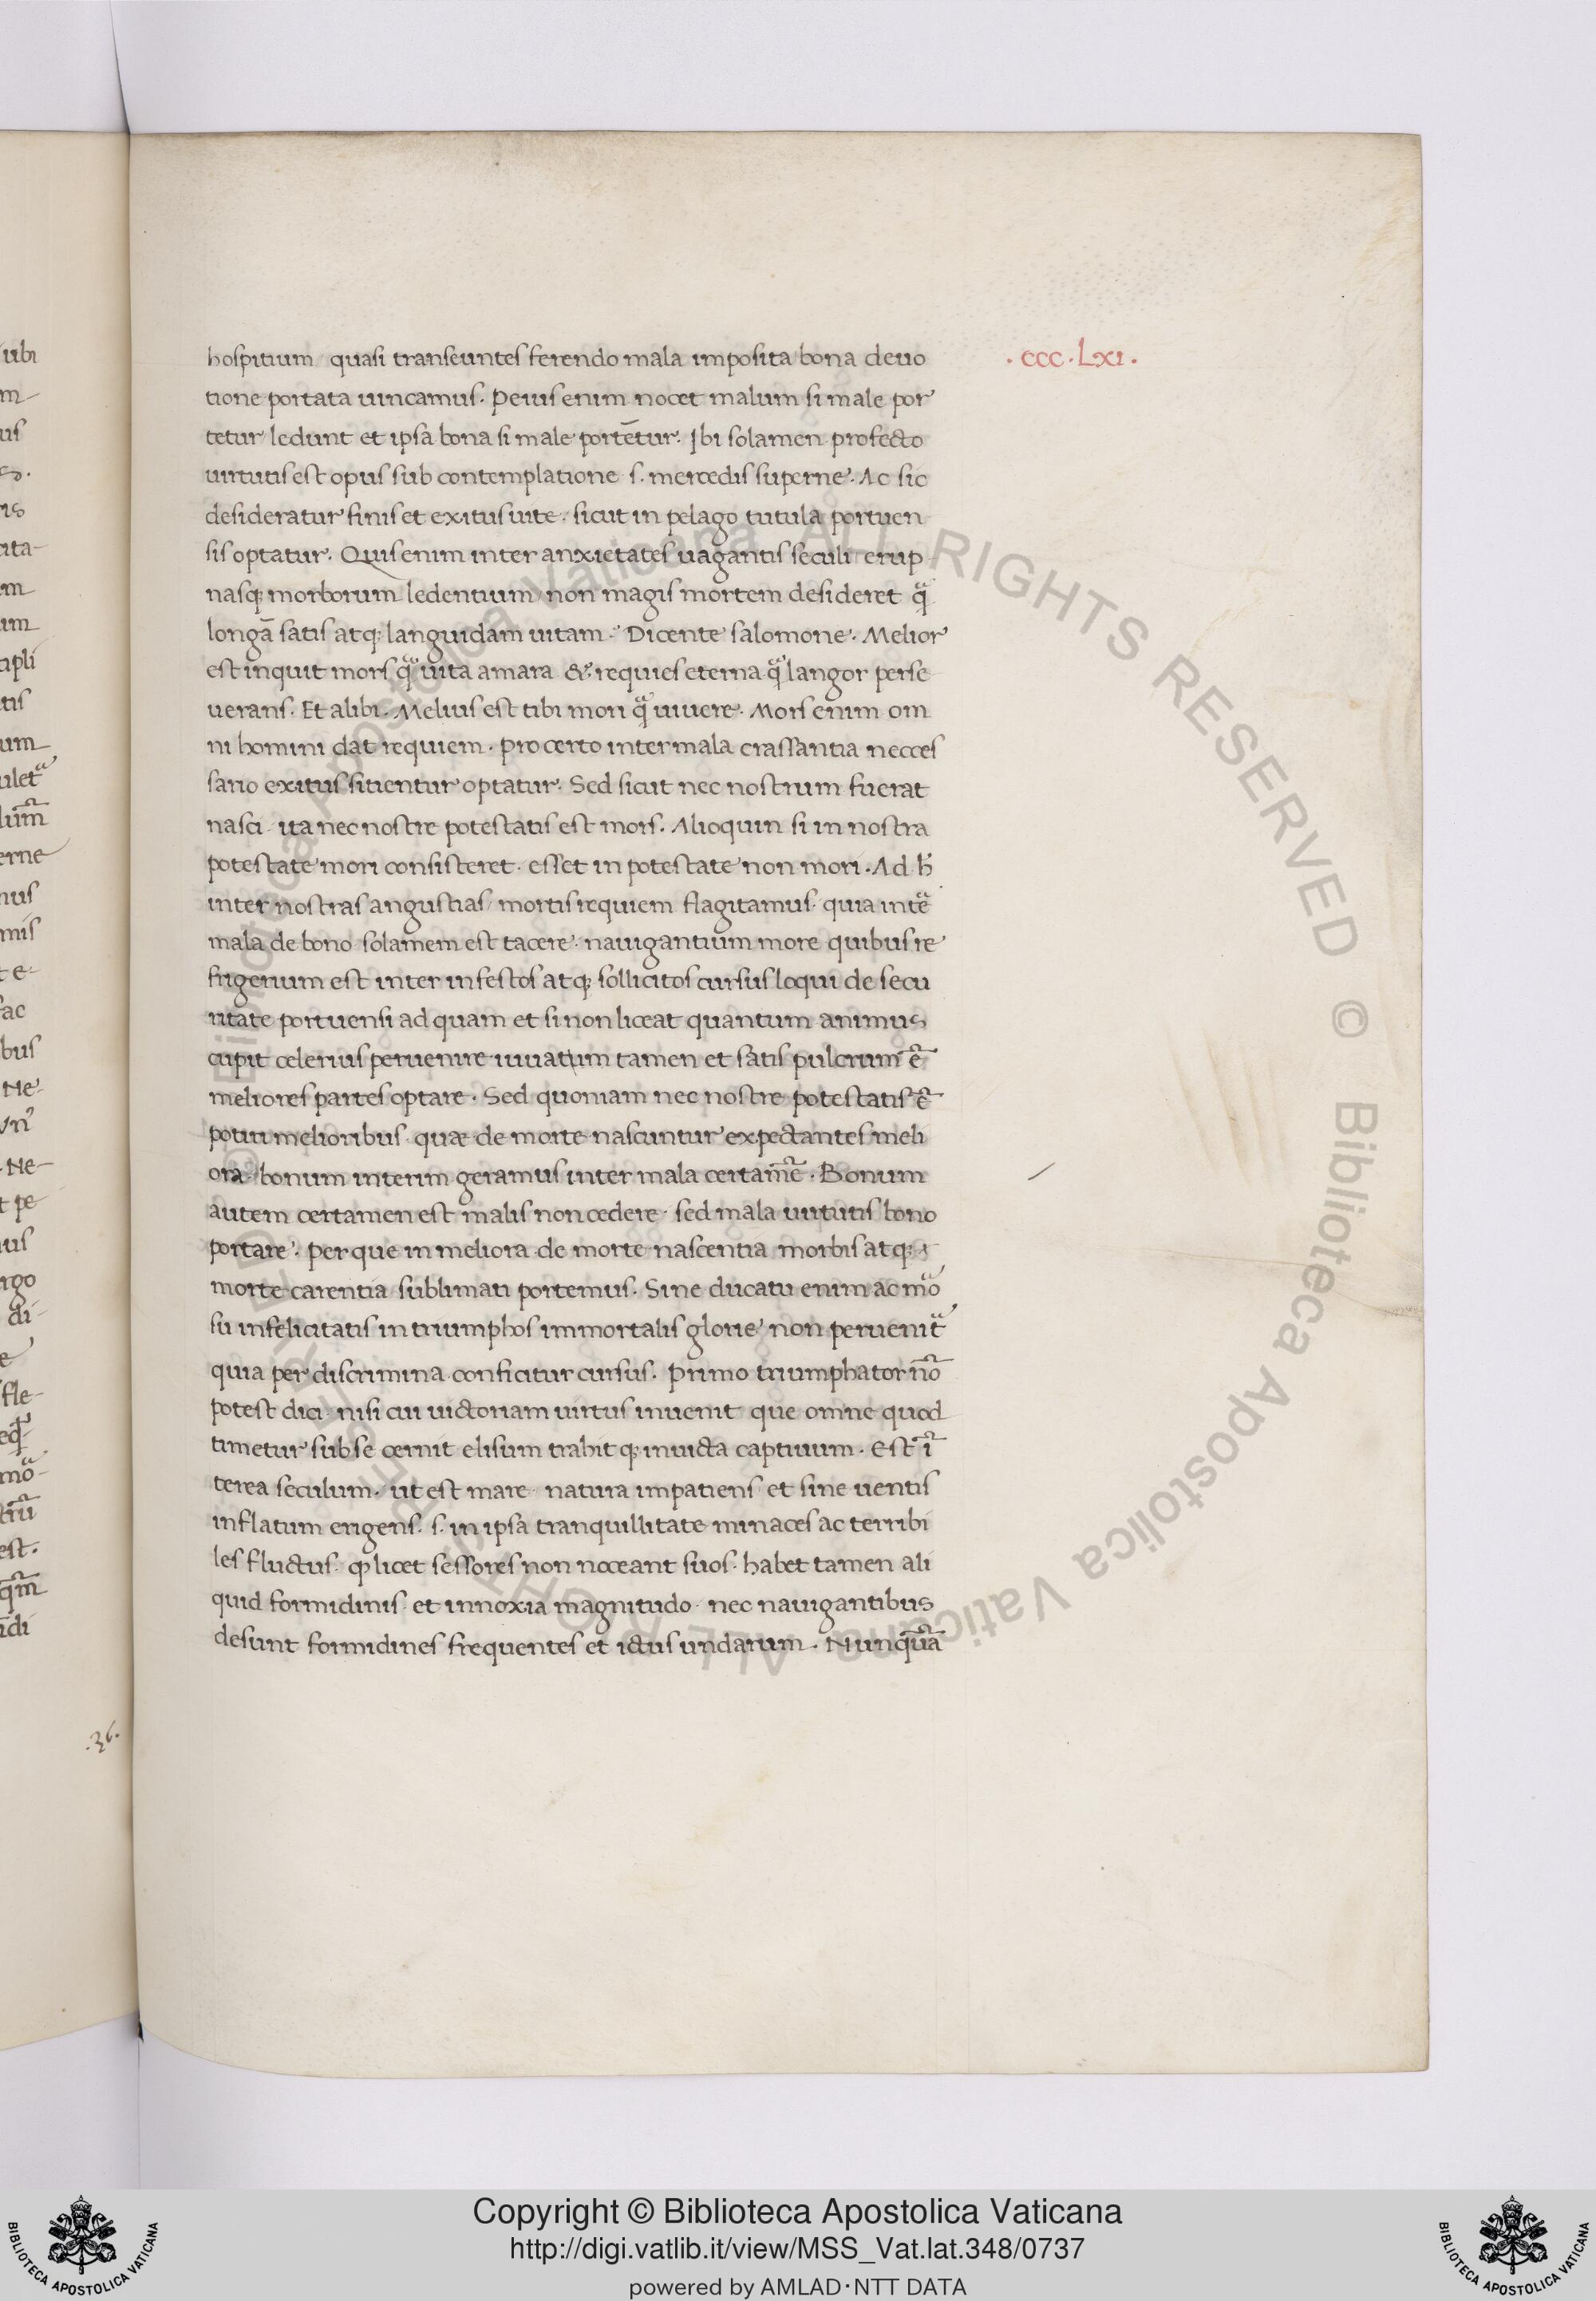 hospitium quasi transeuntes ferendo mala imposita bona deuo
.CCC.LXI.
tione portata uincamus. Peius enim nocet malum si male por
tetur ledunt et ipsa bona si male portēt̄ur. Ibi solamen profecto
uirtutis est opus sub contemplatione .s. mercedis superne. Ac sic
desideratur finis et exitus uite. sicut in pelago tutula portuen
sis optatur. Quis enim inter anxietates uagantis seculi erup
nasq; morborum ledentium non magis mortem desideret q̃
longā satis atq; languidam uitam. Dicente salomone. Melior
est inquit mors q̃ uita amara &. requies eterna q̃ langor perse
uerans. Et alibi. Melius est tibi mori q̃ uiuere. Mors enim om
ni homini dat requiem. pro certo inter mala crassantia necces
sario exitus sitientur optatur. Sed sicut nec nostrum fuerat
nasci. ita nec nostre potestatis est mors. Alioquin si in nostra
potestate mori consisteret. esset in potestate non mori. Ad h̄
inter nostras angustias mortis requiem flagitamus. quia intẽ
mala de bono solamem est tacere. nauigantium more quibus re
frigerium est inter infestos atq; sollicitos cursus loqui de secu
ritate portuensi ad quam et si non liceat quantum animus
cupit celerius peruenire iuuatum tamen et satis pulcrum ē
meliores partes optare. Sed quoniam nec nostre potestatis ē
potiri melioribus. quæ de morte nascuntur expectantes meli
ora. bonum interim geramus inter mala certam̄ē. Bonum
autem certamen est malis non cedere. sed mala uirtutis bono
portare. per que in meliora de morte nascentia morbis atq;
morte carentia sublimati portemus. Sine ducatu enim ac mõ
su infelicitatis in triumphos immortalis glorie non peruenit̃
quia per discrimina conficitur cursus. Primo triumphator nō
potest dici. nisi cui uictoriam uirtus inuenit que omne quod
timetur sub se cernit elisum trahit q; inuicta captiuum. Est ī
terea seculum. ut est mare natura impatiens et sine uentis
inflatum erigens .s. in ipsa tranquillitate minaces ac terribi
les fluctus. qͥ licet sessores non noceant suos. habet tamen ali
quid formidinis et innoxia magnitudo. nec nauigantibus
desunt formidines frequentes et ictus undarum. Nunq̄uā
.36.
© Biblioteca Apostolica Vaticana ALL RIGHTS RESERVED © Biblioteca Apostolica Vaticana ALL RIGHTS RESERVED
Copyright © Biblioteca Apostolica Vaticana
http://digi.vatlib.it/view/MSS_Vat.lat.348/0737
powered by AMLAD·NTT DATA
BIBLIOTECA APOSTOLICA VATICANA
BIBLIOTECA APOSTOLICA VATICANA